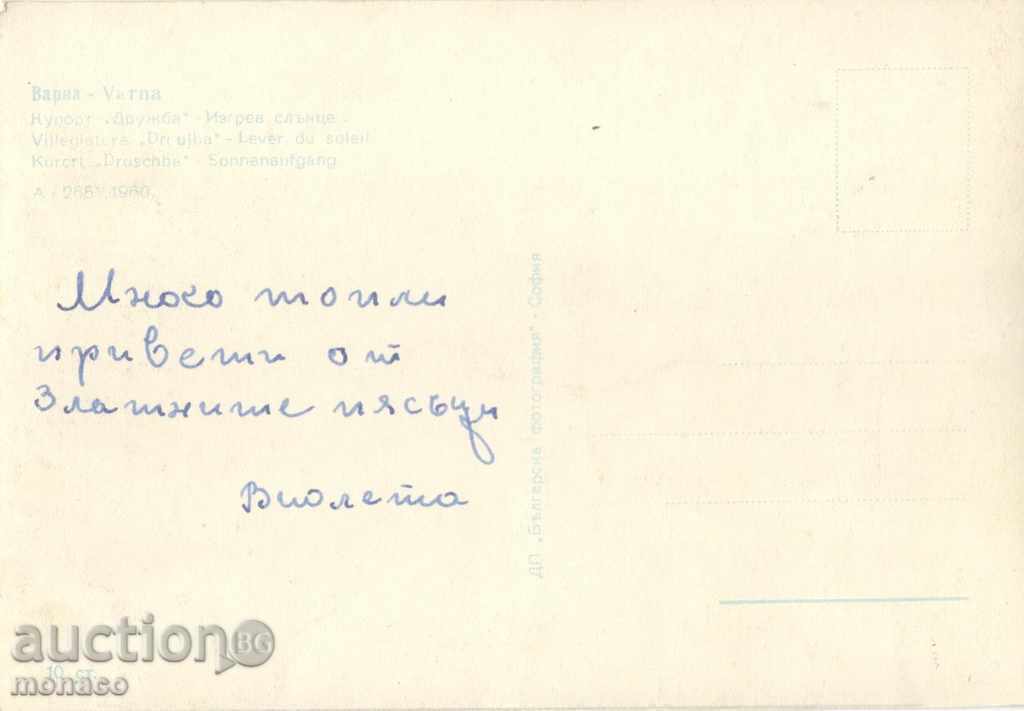 Варна - Varna
Курорт „Дружба" - Изгрев слънце
Villegiatura „Droujba" - Lever du soleil
Kurort „Druschba" - Sonnenaufgang
А - 265 1960
Много топли
привети от
Златните пясъци
Виолета
ДП „Българска фотография" - София
10 ст.
auction BG
monaco